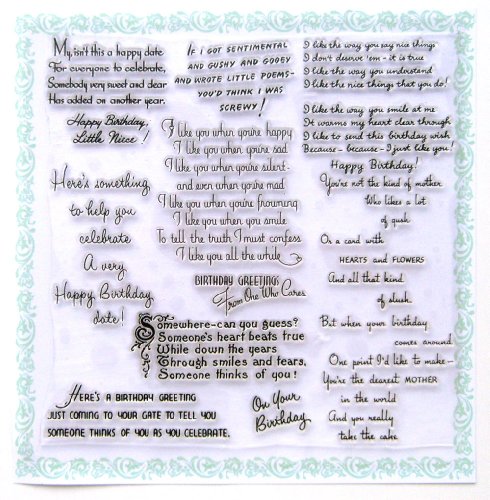 My, isn't this a happy date
For everyone to celebrate,
Somebody very sweet and dear
Has added on another year.
Happy Birthday,
Little Niece!
Here's something
to help you
celebrate
A very
Happy Birthday
date!
IF I GOT SENTIMENTAL
AND GUSHY AND GOOEY
AND WROTE LITTLE POEMS-
YOU'D THINK I WAS
SCREWY!
I like you when you're happy
I like you when you're sad
I like you when you're silent-
and even when you're mad
I like you when you're frowning
I like you when you smile
To tell the truth I must confess
I like you all the while
BIRTHDAY GREETINGS
From One Who Cares
Somewhere-can you guess?
Someone's heart beats true
While down the years
Through smiles and tears,
Someone thinks of you!
HERE'S A BIRTHDAY GREETING
JUST COMING TO YOUR GATE TO TELL YOU
SOMEONE THINKS OF YOU AS YOU CELEBRATE.
On Your
Birthday
I like the way you say nice things
I don't deserve 'em - it is true
I like the way you understand
I like the nice things that you do!
I like the way you smile at me
It warms my heart clear through
I like to send this birthday wish
Because - because - I just like you!
Happy Birthday!
You're not the kind of mother
Who likes a lot
of gush
Or a card with
HEARTS and FLOWERS
And all that kind
of slush
But when your birthday
comes around
One point I'd like to make-
You're the dearest MOTHER
in the world
And you really
take the cake